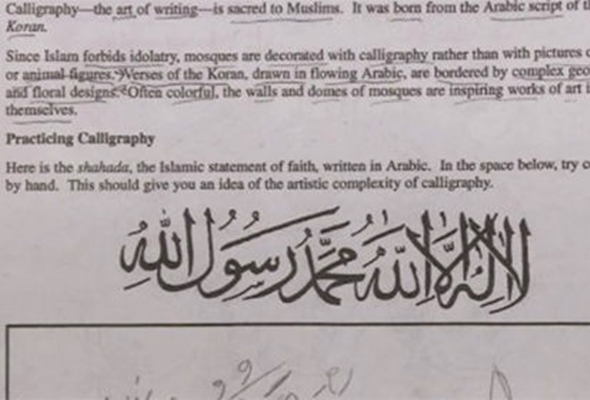 Calligraphy—the art of writing—is sacred to Muslims. It was born from the Arabic script of
Koran.
Since Islam forbids idolatry, mosques are decorated with calligraphy rather than with pictures
or animal figures. Verses of the Koran, drawn in flowing Arabic, are bordered by complex
and floral designs. Often colorful, the walls and domes of mosques are inspiring works of art
themselves.
Practicing Calligraphy
Here is the shahada, the Islamic statement of faith, written in Arabic. In the space below, try
by hand. This should give you an idea of the artistic complexity of calligraphy.
لا إله إلا الله محمد رسول الله